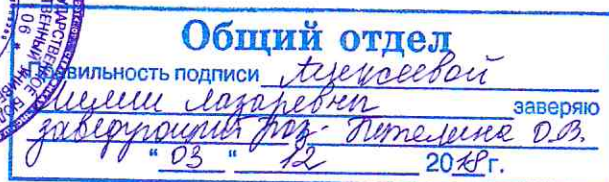 Общий отдел
Правильность подписи Алексеевой
Лилии Лазаревны заверяю
заведующий
"03" 12 2018г.